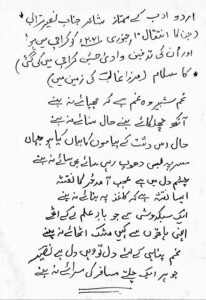 اردو ادب کے ممتاز شاعر جناب نصیر ترابی
(جن کا انتقال ۱۰ جنوری ۲۰۲۱ کو کراچی میں ہوا
اور اُن کی تدفین وادئ حسین کراچی میں کی گئی)
کا سلام (مرزا غالب کی زمین میں)
غمِ شبیر وہ غم ہے کہ چھپائے نہ بنے
آنکھ چھلکائے بنے حال سنائے نہ بنے
حال اس دشت کے پیاسوں کا بیاں کیا ہو جہاں
سر پہ لیں دھوپ رہیں سائے میں سائے نہ بنے
چشم دل میں ہے عجب کا نقشہ
ایسا نقشہ ہے کہ کاغذ پہ بنائے نہ بنے
اک سبکدوشی ہے جو بارِ علم لے کے اٹھے
اپنی ہاتھوں سے کہیں مشک اٹھائے نہ بنے
غم بنائی کے لئے دل تو دیں دل ہے نصیر
جو ہر اک مسافر کی سرائے نہ بنے